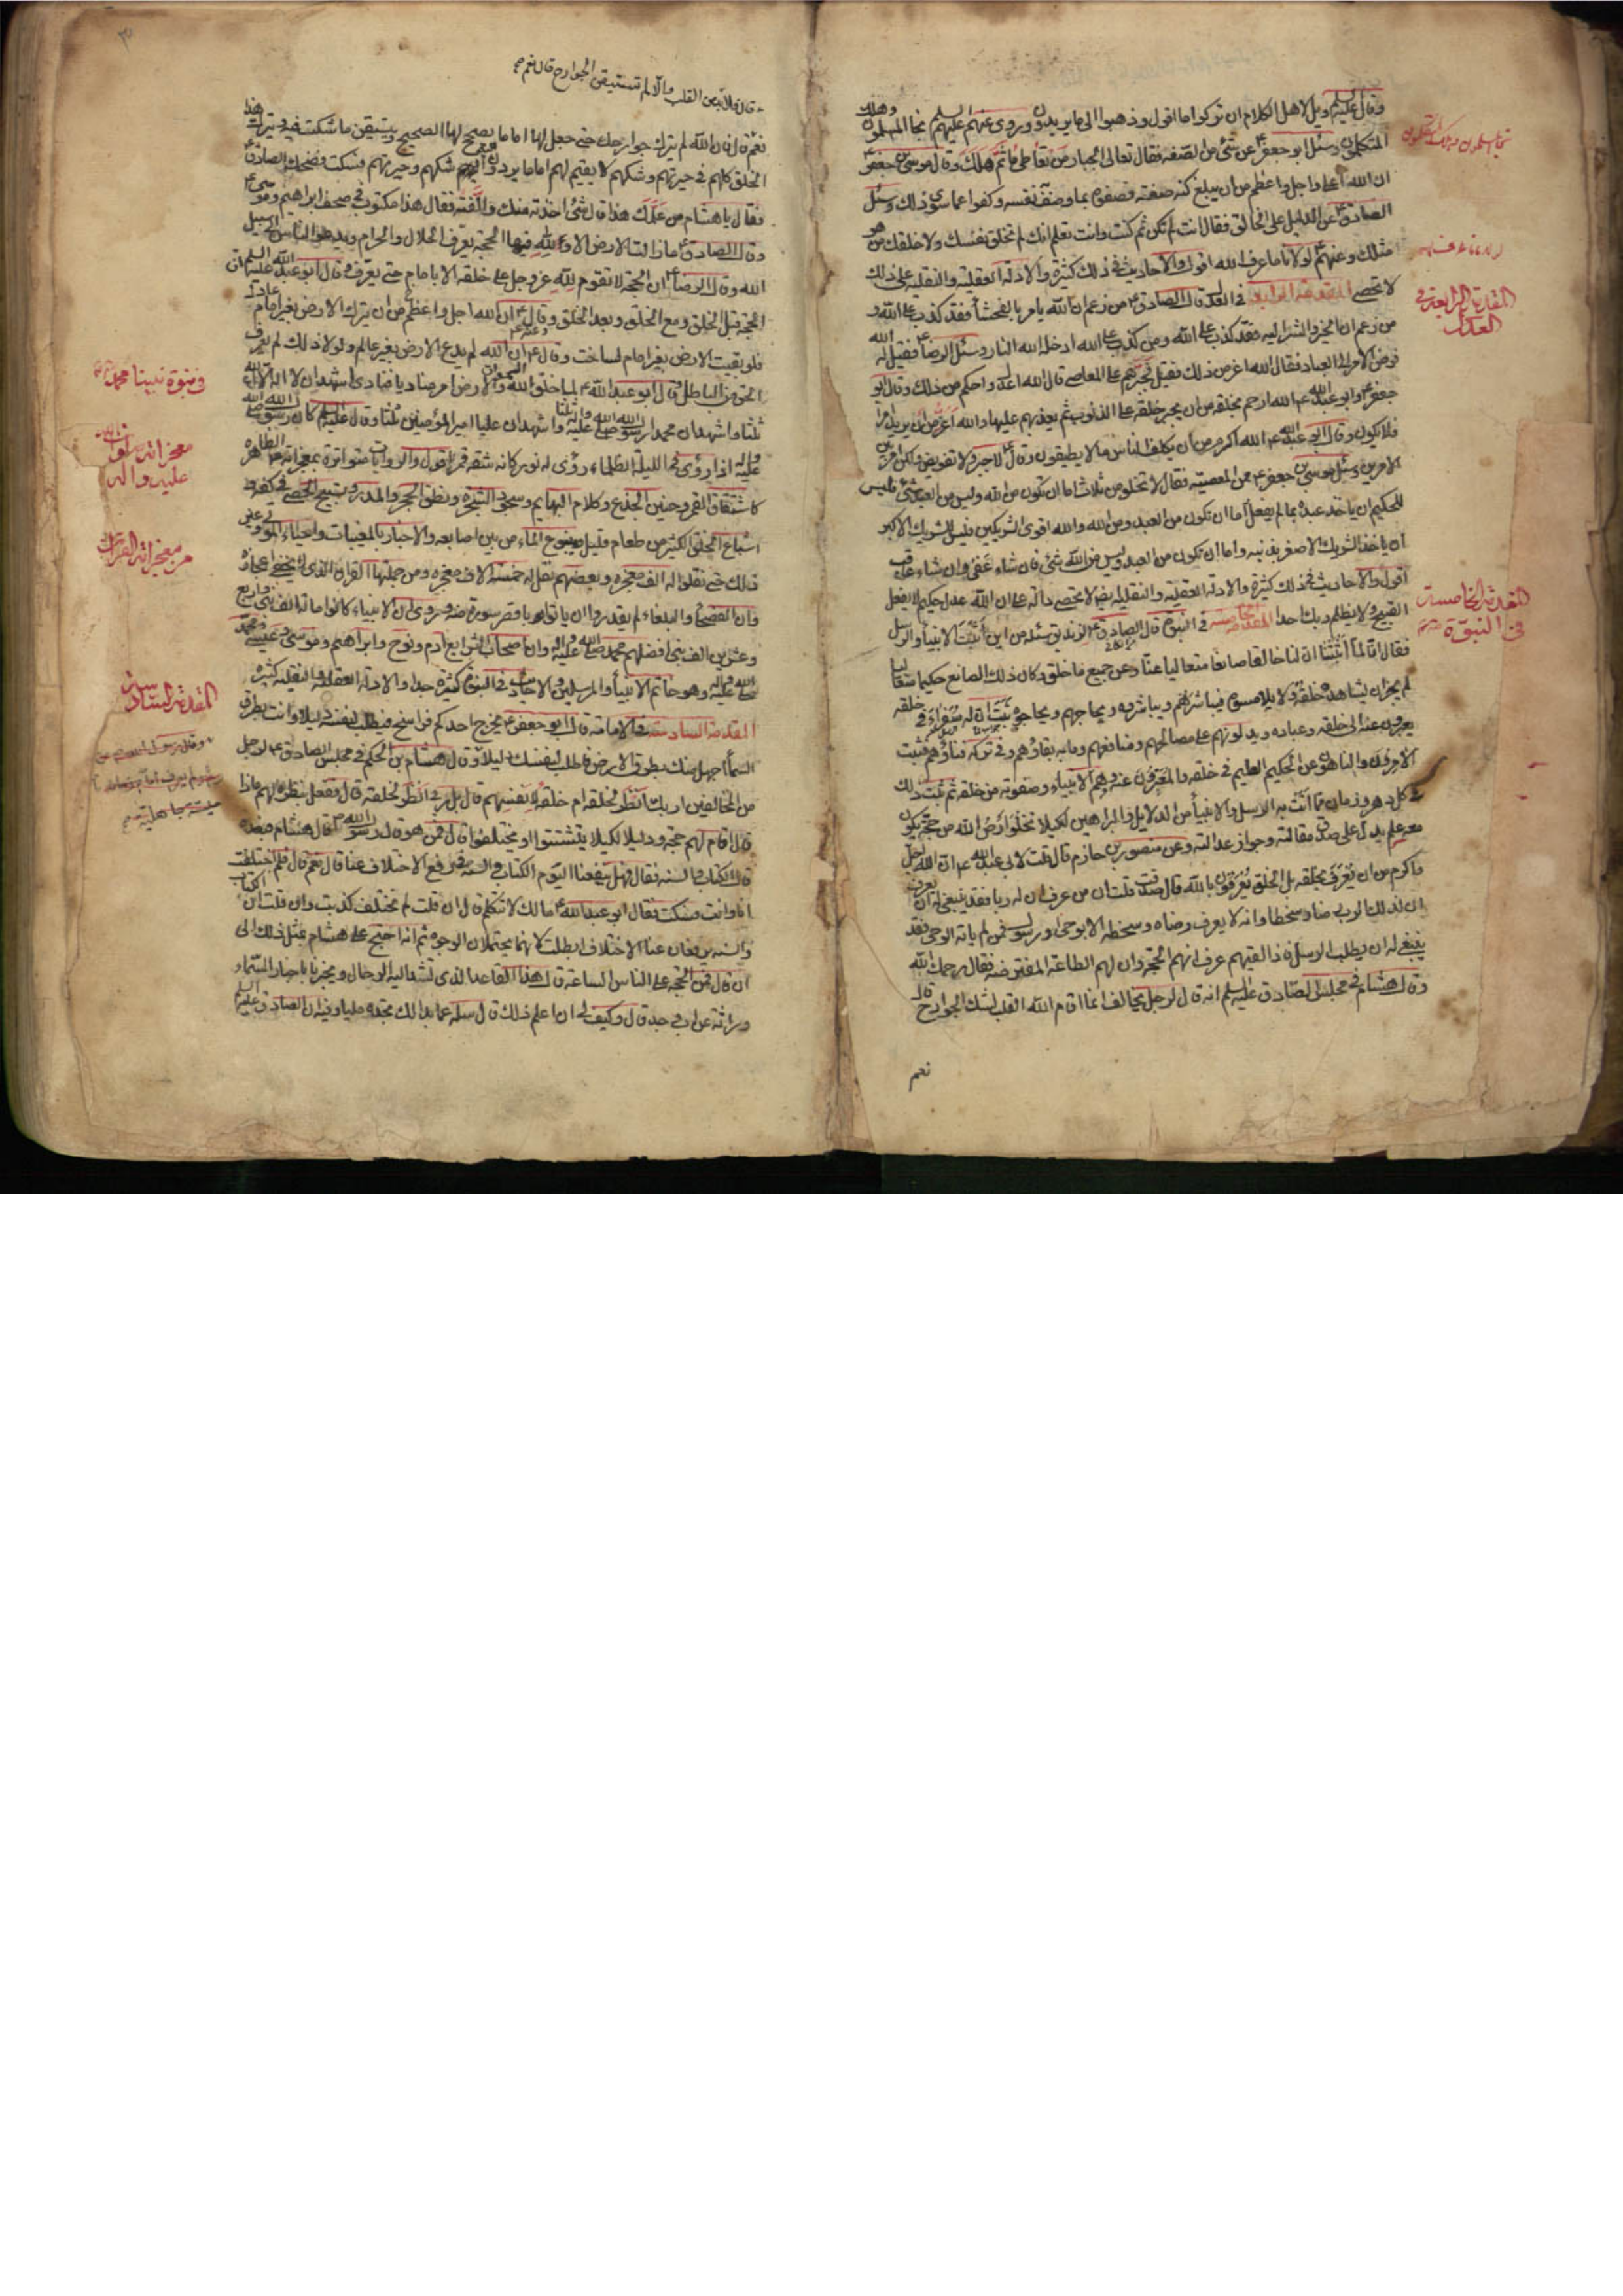 وقال عليه السلم ويل لاهل الكلام ان تركوا ما اقول وذهبوا الى ما يريدون وروى عنهم عليهم السلم نجا المسلمون وهلك
المتكلمون وسئل ابو جعفر ع عن شئ من الصفة فقال تعالى الجبار من تعاطى ما ثم هلك وقال موسى بن جعفر ع
ان الله اعلا واجل واعظم من ان يبلغ كنه صفته فصفوه بما وصف نفسه وكفوا عما سوى ذلك وسئل
الصادق ع عن الدليل على الخالق فقال انت لم تكن ثم كنت وانت تعلم انك لم تخلق نفسك ولا خلقك من هو
مثلك وعنهم ع لولانا ما عرف الله اقول والاحاديث في ذلك كثيرة والادلة العقلية والنقلية على ذلك
لا تحصى المقدمة الرابعة في العدل قال الصادق ع من زعم ان الله يامر بالفحشاء فقد كذب على الله و
من زعم ان الخير والشر اليه فقد كذب على الله ومن كذب على الله ادخله الله النار وسئل الرضا ع فقيل له الله
فوض الامر الى العباد فقال الله اعز من ذلك فقيل فجبرهم على المعاصى قال الله اعدل واحكم من ذلك وقال ابو
جعفر ع وابو عبد الله ع الله ارحم بخلقه من ان يجبر خلقه على الذنوب ثم يعذبهم عليها والله اعز من ان يريد امرا
فلا يكون وقال ابو عبد الله ع الله اكرم من ان يكلف الناس ما لا يطيقون وقال ع لا جبر ولا تفويض ولكن امر بين
الامرين وسئل موسى بن جعفر ع ممن المعصية فقال لا تخلو من ثلاث اما ان تكون من الله وليس من العبد شئ فليس
للحكيم ان ياخذ عبده بما لم يفعل واما ان تكون من العبد ومن الله والله اقوى الشريكين فليس للشريك الاكبر
ان ياخذ الشريك الاصغر بذنبه واما ان تكون من العبد وليس من الله شئ فان شاء عفى وان شاء عاقب
اقول والاحاديث في ذلك كثيرة والادلة العقلية والنقلية ايضا لا تحصى دالة على ان الله عدل حكيم لا يفعل
القبيح ولا يظلم ربك احدا المقدمة الخامسة في النبوة قال الصادق ع لزنديق سئله من اين اثبت الانبياء والرسل
فقال انا لما اثبتنا ان لنا خالقا صانعا متعاليا عنا وعن جميع ما خلق وكان ذلك الصانع حكيما متعاليا
لم يجز ان يشاهده خلقه ولا يلامسوه فيباشرهم ويباشروه ويحاجهم ويحاجوه ثبت ان له سفراء في خلقه
يعبرون عنه الى خلقه وعباده ويدلونهم على مصالحهم ومنافعهم وما به بقاؤهم وفي تركه فناؤهم فثبت
الامرون والناهون عن الحكيم العليم في خلقه والمعبرون عنه وهم الانبياء وصفوته من خلقه ثم ثبت ذلك
في كل دهر وزمان مما اتت به الرسل والانبياء من الدلايل والبراهين لكيلا تخلو ارض الله من حجة يكون
معه علم يدل على صدق مقالته وجواز عدالته وعن منصور بن حازم قال قلت لابي عبد الله ع ان الله اجل
واكرم من ان يعرف بخلقه بل الخلق يعرفون بالله قال صدقت قلت ان من عرف ان له ربا فقد ينبغي له ان يعرف
ان لذلك الرب رضا وسخطا وانه لا يعرف رضاه وسخطه الا بوحى او رسول فمن لم ياته الوحى فقد
ينبغى له ان يطلب الرسل فاذا لقيهم عرف انهم الحجة وان لهم الطاعة المفترضة فقال رحمك الله
وقال هشام في مجلس الصادق عليه السلم انه قال لرجل مخالف انما اقام الله القلب لشك الجوارح قال
نعم
المقدمة الرابعة في
العدل
المقدمة الخامسة
في النبوة
قال فلا بد من القلب والا لم تستيقن الجوارح قال نعم صح
نعم قال فان الله لم يترك جوارحك حتى جعل لها اماما يصحح لها الصحيح ويتيقن ما شكت فيه ويترك هذا
الخلق كلهم في حيرتهم وشكهم لا يقيم لهم اماما يردون اليه شكهم وحيرتهم فسكت فضحك الصادق ع
فقال يا هشام من علمك هذا قال شئ اخذته منك والفته فقال هذا مكتوب في صحف ابراهيم وموسى
وقال الصادق ع ما زالت الارض الا ولله فيها الحجة يعرف الحلال والحرام ويدعو الناس الى سبيل
الله وقال الرضا ع ان الحجة لا تقوم لله عز وجل على خلقه الا بامام حتى يعرف وقال ابو عبد الله عليه السلم ان
الحجة قبل الخلق ومع الخلق وبعد الخلق وقال ع ان الله اجل واعظم من ان يترك الارض بغير امام عادل
فلو بقيت الارض بغير امام لساخت وقال ع ان الله لم يدع الارض بغير عالم ولولا ذلك لم يعرف
الحق من الباطل وقال ابو عبد الله ع لما خلق الله السموات والارض امر مناديا فنادى اشهد ان لا اله الا الله
ثلثا واشهد ان محمدا رسول الله صلى الله عليه واله ثلثا واشهد ان عليا امير المؤمنين ثلثا وقال عليه السلم كان رسول الله صلى الله
عليه واله اذا رؤى في الليلة الظلماء رؤى له نور كانه شقة قمر اقول والروايات متواترة بمعجزاته الظاهرة
كانشقاق القمر وحنين الجذع وكلام البهايم وسجود الشجرة ونطق الحجر والمدر وتسبيح الحصى في كفه و
اشباع الخلق الكثير من طعام قليل ونبوع الماء من بين اصابعه والاخبار بالمغيبات واحياء الموتى وغير
ذلك حتى نقلوا له الف معجزة وبعضهم نقل له خمسة الاف معجزة ومن جملتها القران الذي لا يخفى اعجازه
وان الفصحاء والبلغاء لم يقدروا ان ياتوا باقصر سورة منه وروى ان الانبياء كانوا ماية الف نبى واربع
وعشرين الف نبى افضلهم محمد صلى الله عليه واله وان اصحاب الشرايع ادم ونوح وابراهيم وموسى وعيسى ومحمد
صلى الله عليه واله وهو خاتم الانبياء والمرسلين والاحاديث في النبوة كثيرة جدا والادلة العقلية والنقلية كثيرة
المقدمة السادسة في الامامة قال ابو جعفر ع يخرج احدكم فراسخ فيطلب لنفسه دليلا وانت بطرق
السماء اجهل منك بطرق الارض فاطلب لنفسك دليلا وقال هشام بن الحكم في مجلس الصادق ع لرجل
من المخالفين اربك انظر لخلقه ام خلقه لانفسهم قال بل ربى انظر لخلقه قال ففعل بنظره لهم ماذا
قال اقام لهم حجة ودليلا لكيلا يتشتتوا او يختلفوا قال فمن هو قال رسول الله ص قال هشام فبعده
قال الكتاب والسنة فقال فهل ينفعنا اليوم الكتاب والسنة في رفع الاختلاف عنا قال نعم قال فلم اختلفت
انا وانت فسكت فقال ابو عبد الله ع ما لك لا تتكلم قال ان قلت لم نختلف كذبت وان قلت ان الكتاب
والسنة يرفعان عنا الاختلاف ابطلت لانهما يحتملان الوجوه ثم انه احتج على هشام بمثل ذلك الى
ان قال فمن الحجة على الناس الساعة قال هذا القاعد الذي تشد اليه الرحال ويخبرنا باخبار السماء
وراثة عن اب عن جد قال وكيف لى ان اعلم ذلك قال سله عما بدا لك
ونبوة نبينا محمد
معجزاته صلوات الله
عليه واله
من معجزاته القران
المقدمة السادسة